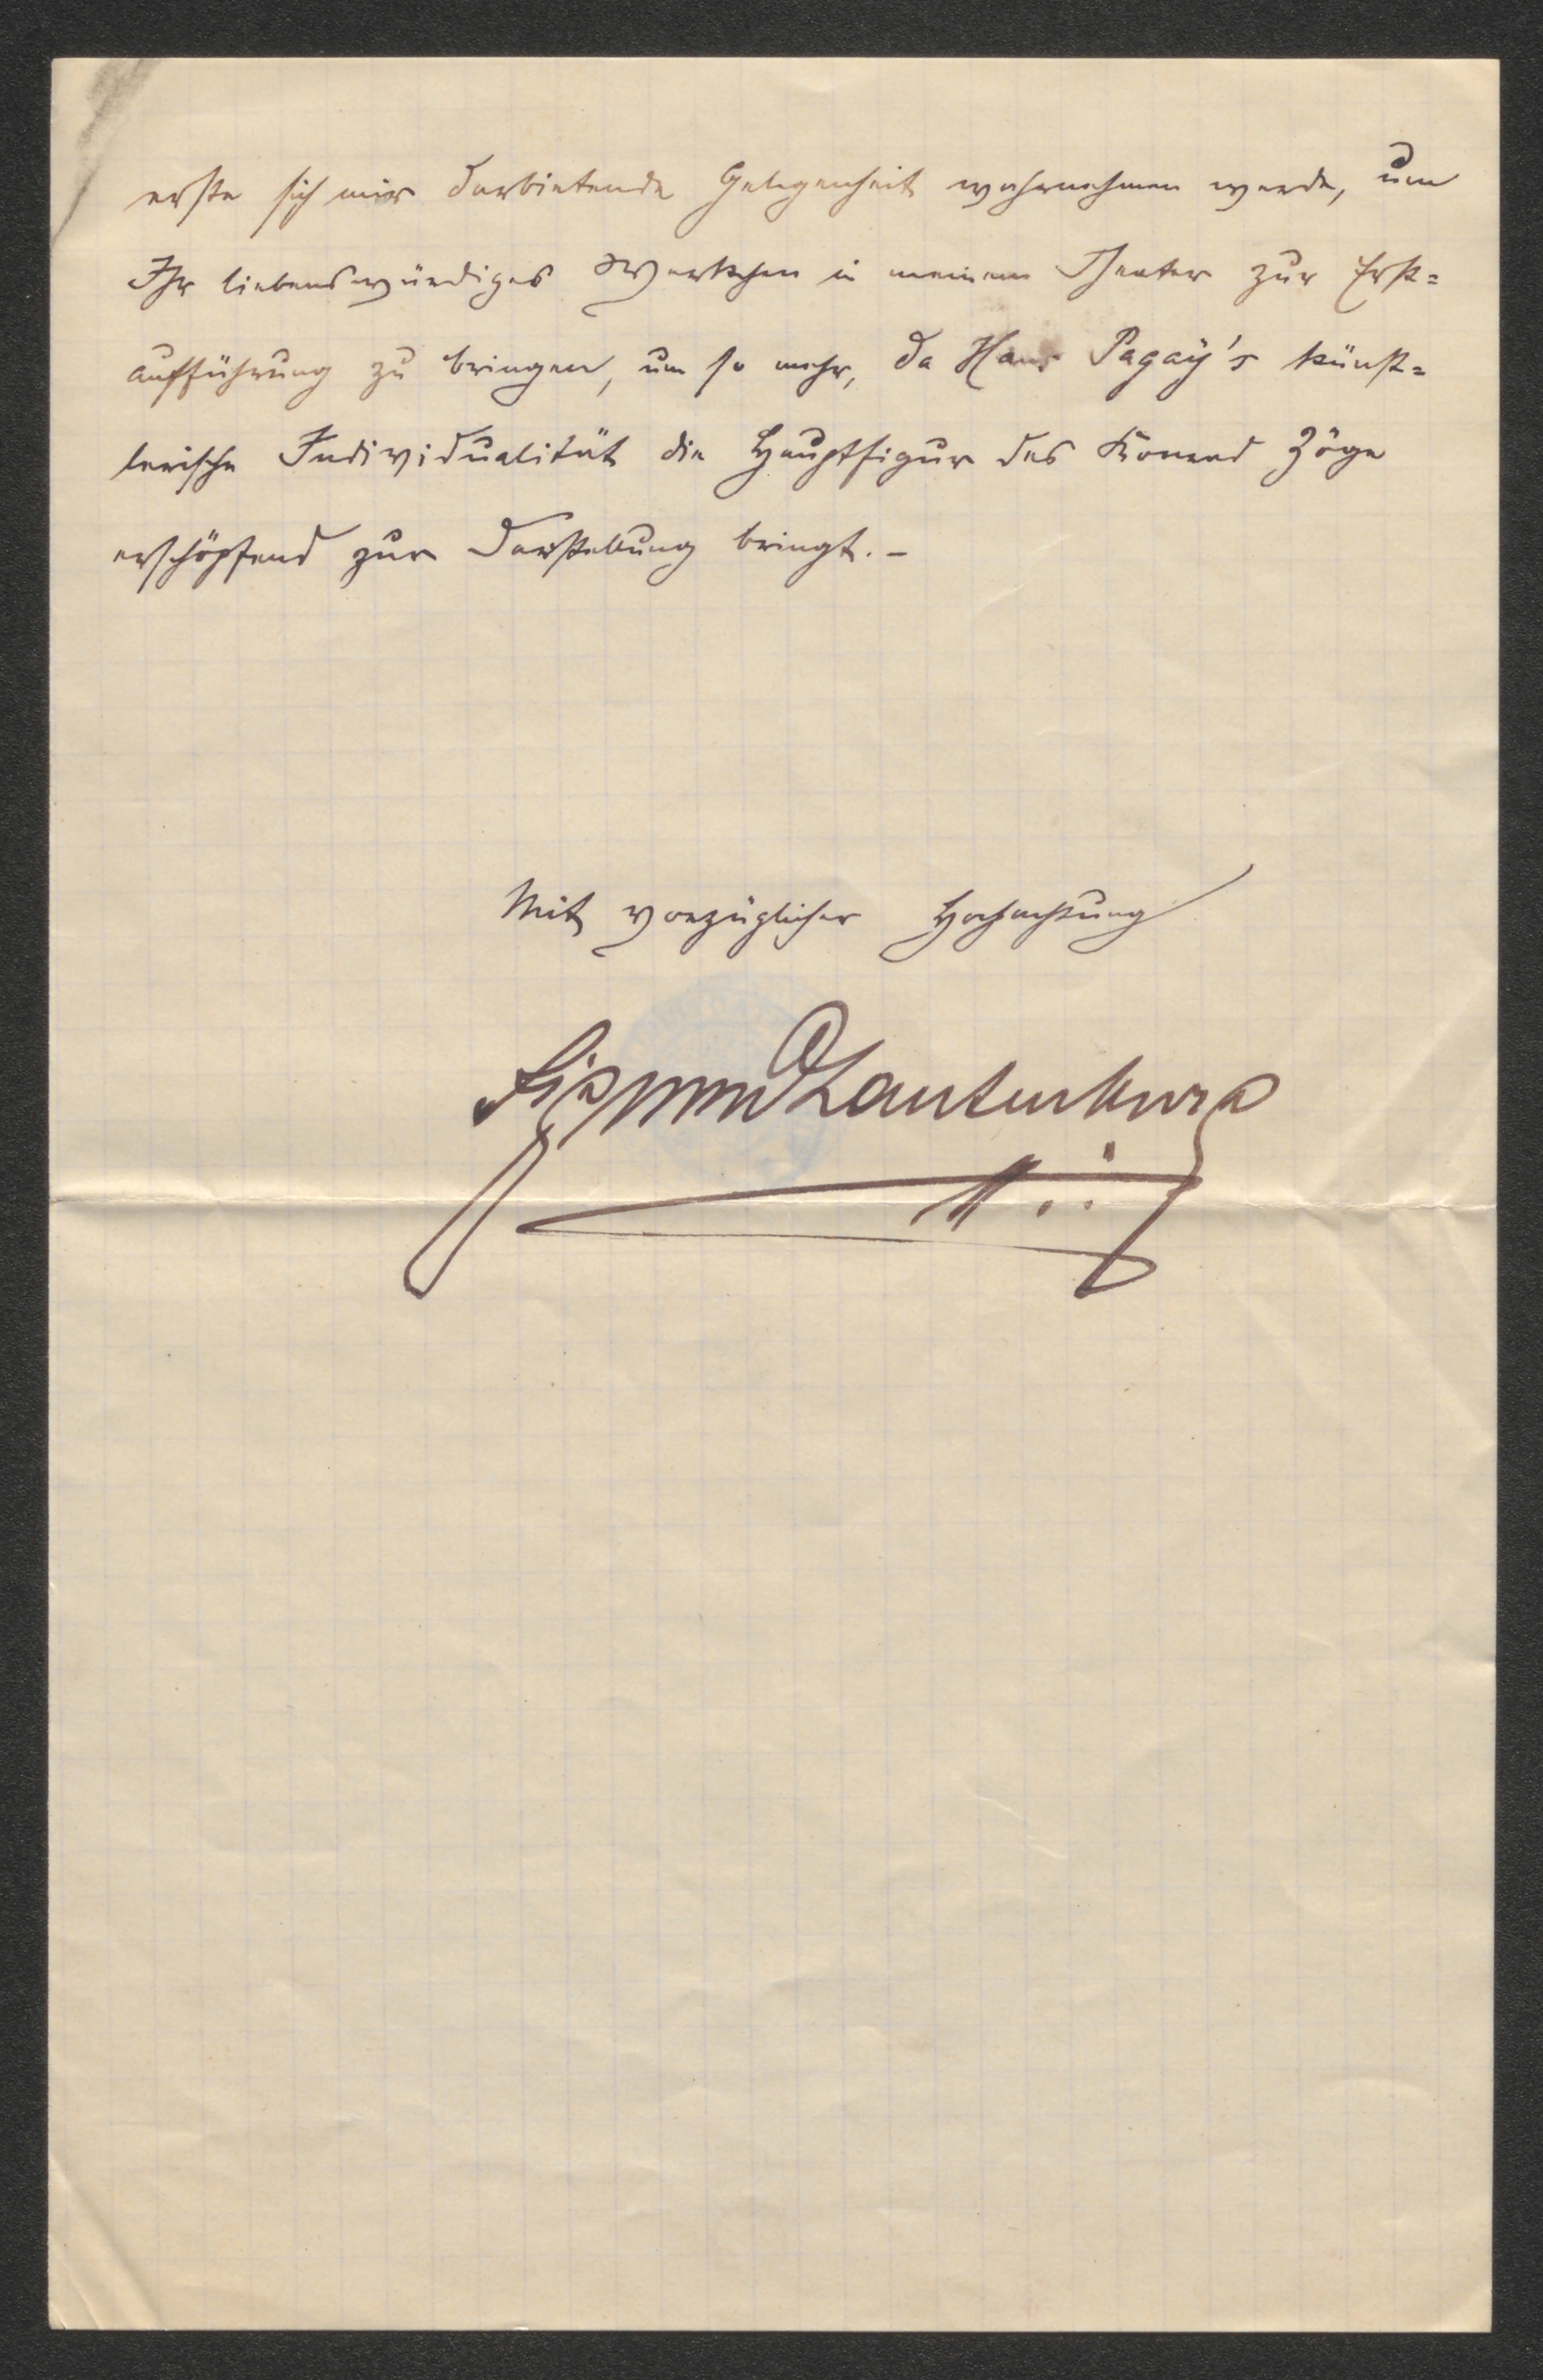 erste sich mir darbietende Gelegenheit wahrnehmen werde, um
Ihr liebenswürdiges Werkchen in meinem Theater zur Erst=
aufführung zu bringen, um so mehr, da Hans Pagaÿ's künst=
lerische Individualität die Hauptfigur des Konrad Zöge
erschöpfend zur Darstellung bringt. –
Mit vorzüglicher Hochachtung
Sigmund Lautenburg